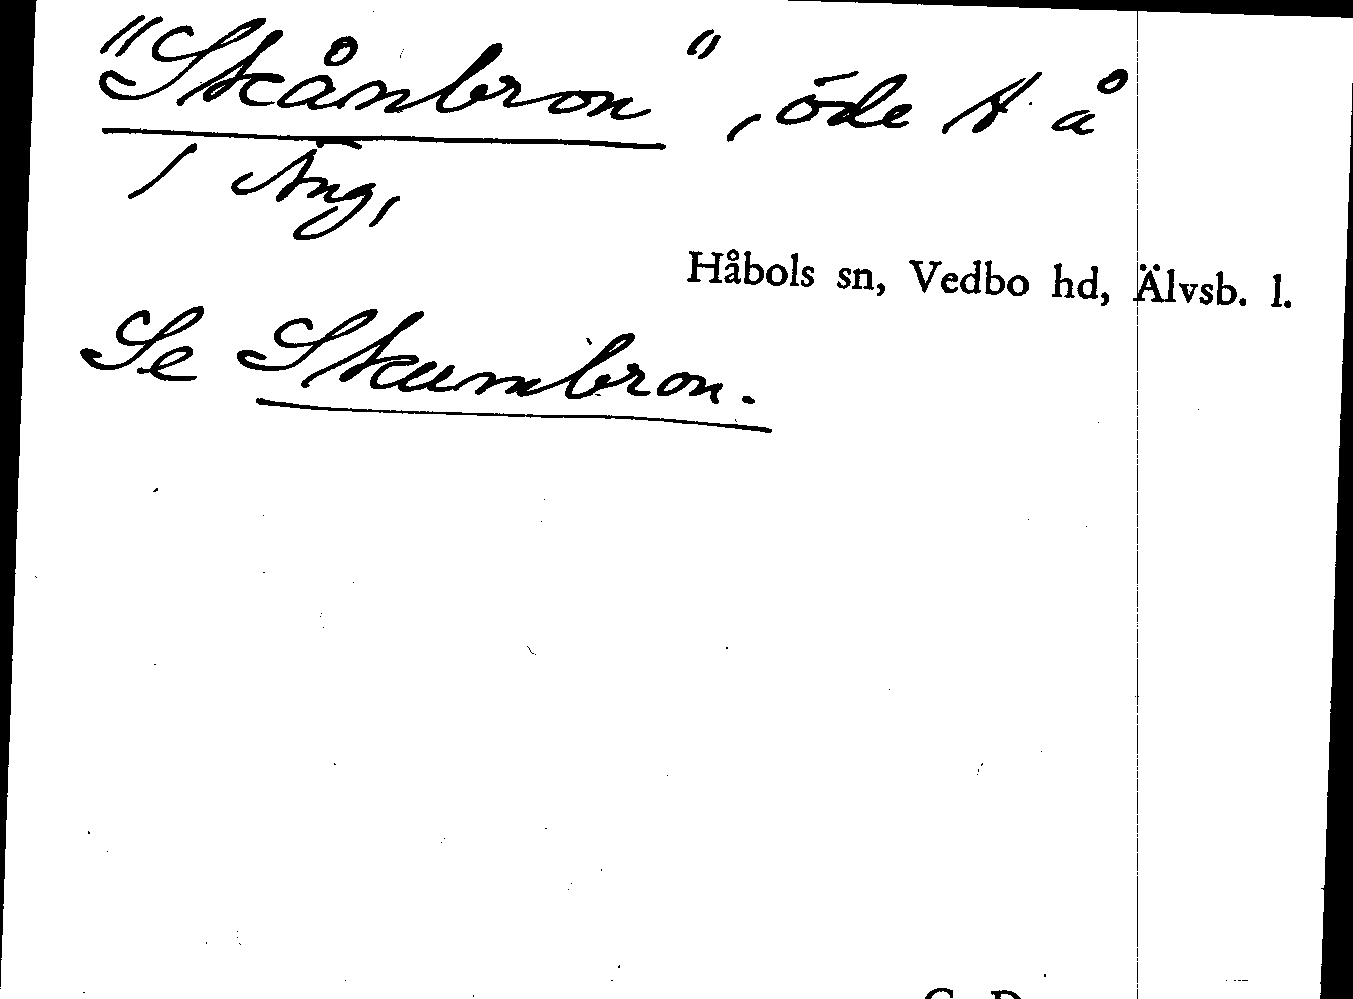 "Skånbron", öde t å
1 Äng,
Håbols sn, Vedbo hd, Älvsb. l.
Se Skumbron.